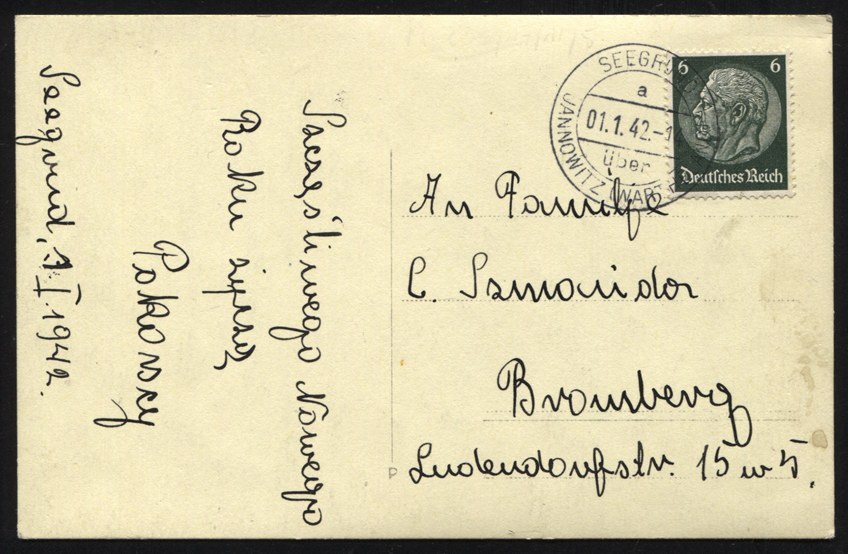 Seegrund, 1. I 1942.
Szczęśliwego Nowego
Roku życzą
Pokorscy
SEEGRU
a
01.1.42.-1
über
JANNOWITZ (WARTHE
6 6
Deutsches Reich
An Familje
C. Szmańdor
Bromberg
Ludendorfstr. 15 w 5.
P